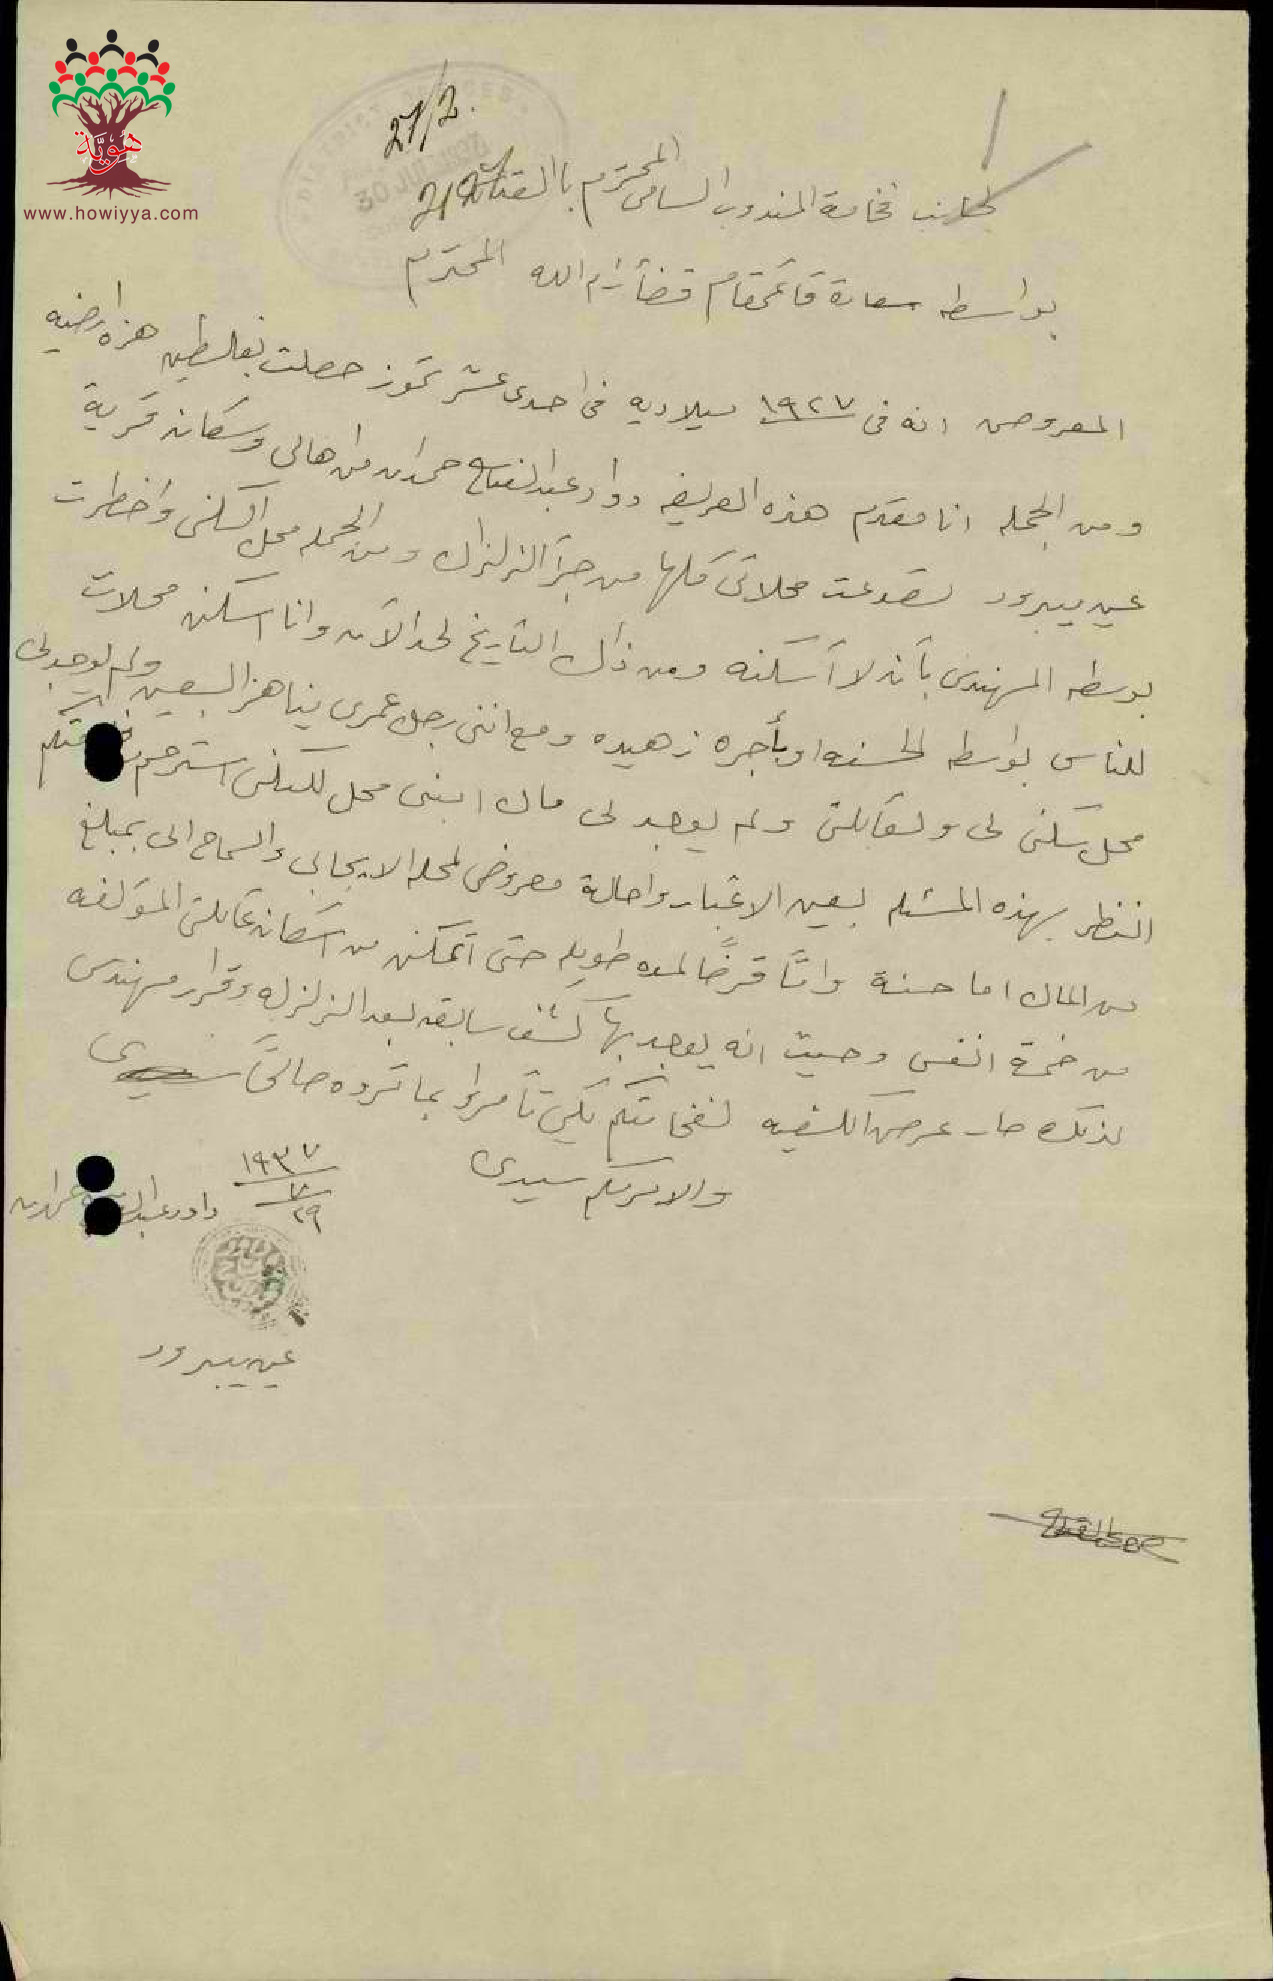 هَوِيَّة
www.howiyya.com
27/2.
DISTRICT OFFICES
30 JUL 1937
لجانب فخامة المندوب السامي المحترم بالقدس
بواسطه سعادة قائمقام قضأ رام الله المحترم
المعروض انه في ١٩٢٧ ميلاديه في احدى عشر تموز حصلت بفلسطين هزه ارضيه
ومن الجمله انا مقدم هذه العريضه داود عبد الفتاح حمدان من اهالي وسكان قرية
عين يبرود تصدعت محلاتي كلها من جرآ الزلزال ومن الجمله محل السكني واخطرت
بوسطه المهندس بأن لا آسكنه ومن ذالك التاريخ لحد الآن وانا اسكن محلات
للناس بواسطه الحسنه او بأجره زهيده ومع انني رجل عمري يناهز السبعين ولم يوجد لي
محل سكني لي ولعايلتي ولم يوجد لي مال ابني محل للسكني استرحم فخامتكم
النظر بهذه المسئله بعين الاعتبار واحالة معروضي لمحله الايجابي والسماح الي بمبلغ
من المال اما حسنة وامّا قرضًا لمده طويله حتى اتمكن من اسكان عايلتي المؤلفه
من خمسة انفس وحيث انه يوجد بها كشف سابقه بعد الزلزله وقرار مهندس
لذلك صار عرض الكيفيه لفخامتكم لكي تأمروا بما تروه صالحًا سيدي
والامر لكم سيدي
١٩٣٧
٧
٢٩
داود عبد حمدان
عين يبرود